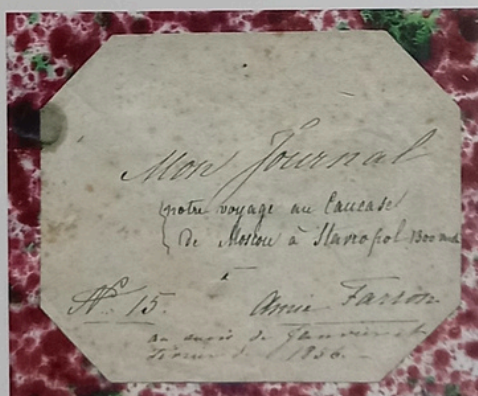 Mon Journal
notre voyage au Caucase
de Moscou à Stavropol 1300
No. 15. Annie Farron
au mois de Janvier et
Février 1856.